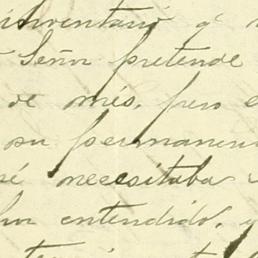 inventario y
Señor pretende
de més, pero e
su permanen
sé necesitaba
entendido, y